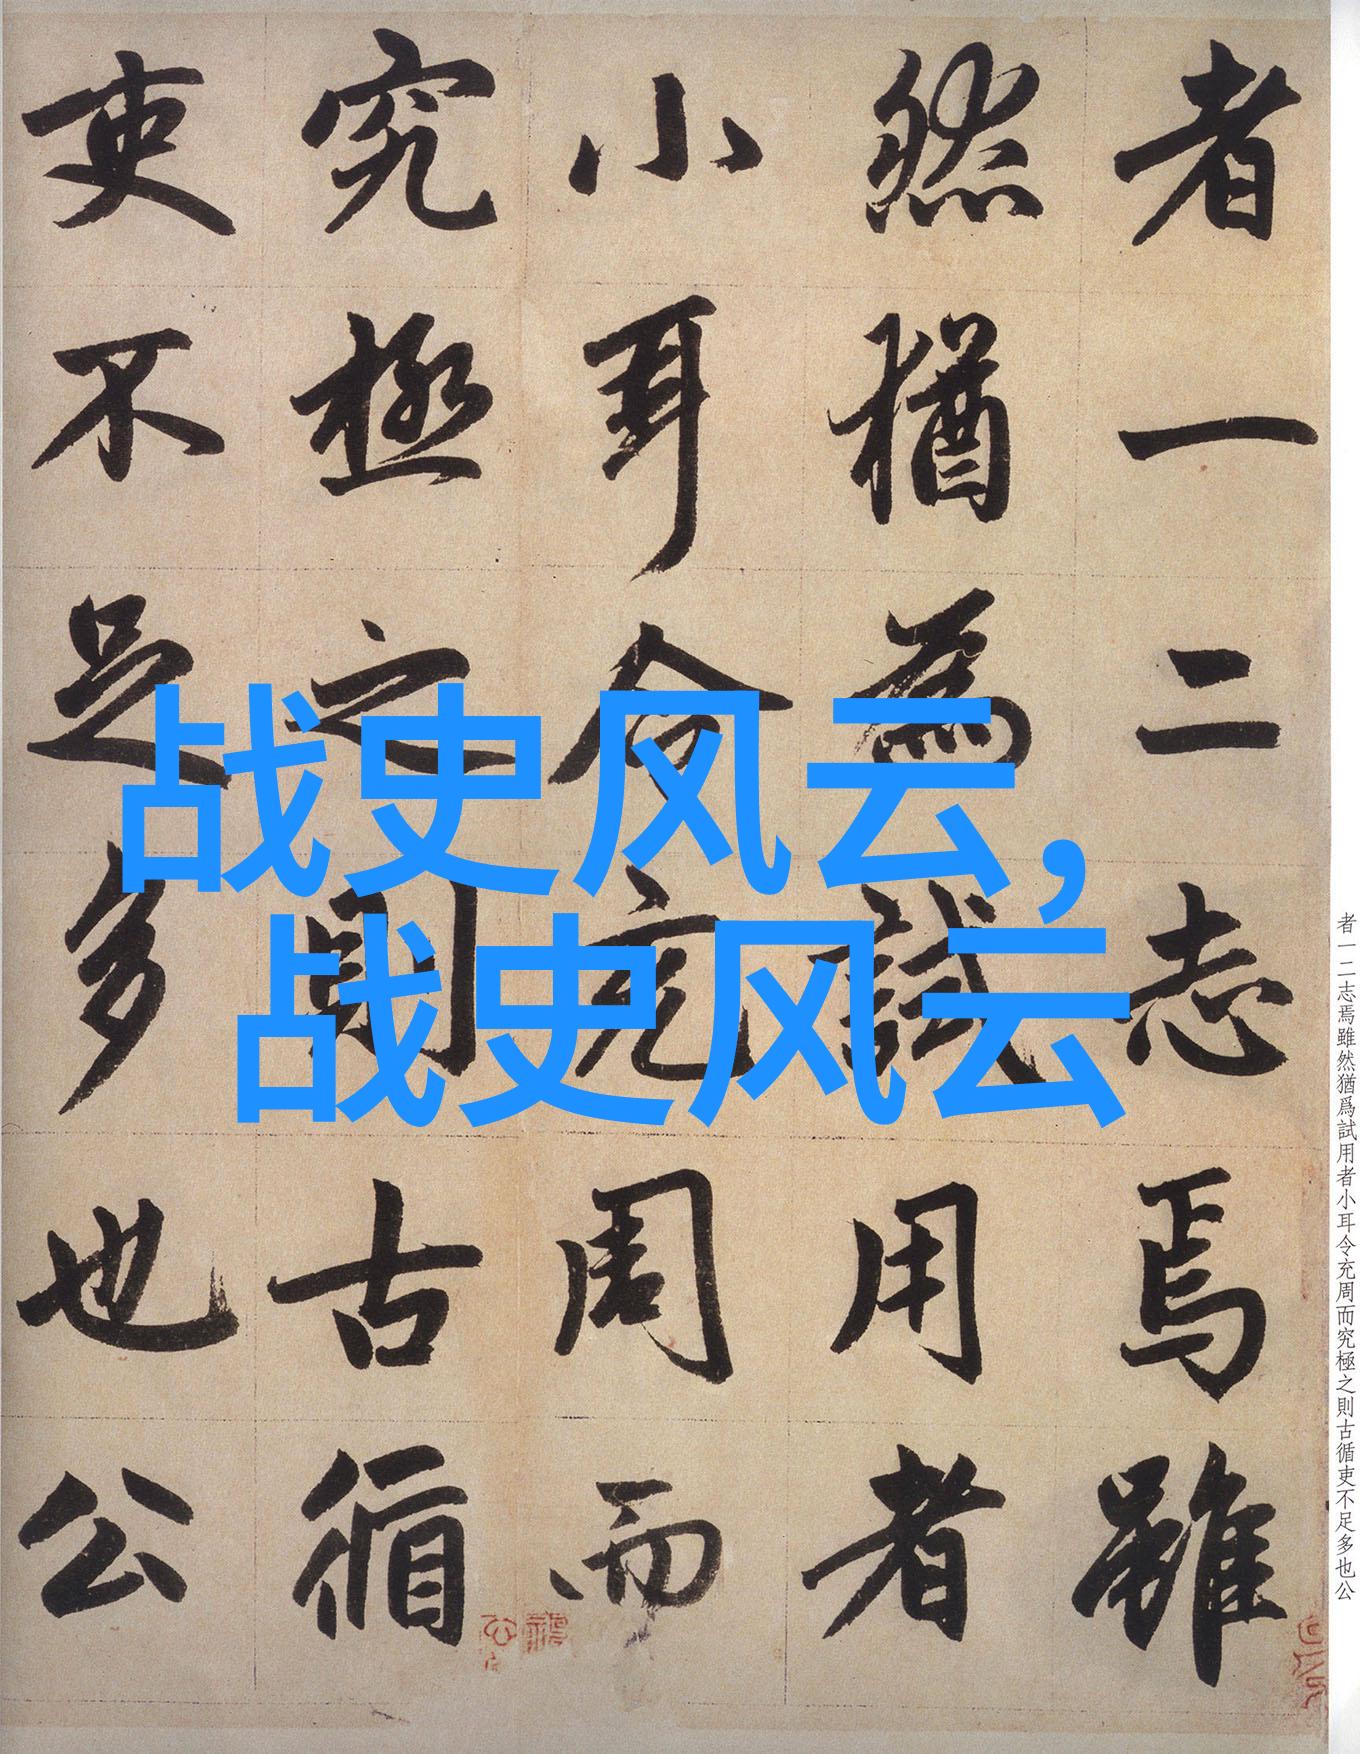 者一二志焉雖
然猶為試用者
小耳令充周而
究極之則古循
吏不足多也公
战史风云，
战史风云
者一二志焉雖然猶爲試用者小耳令充周而究極之則古循吏不足多也公